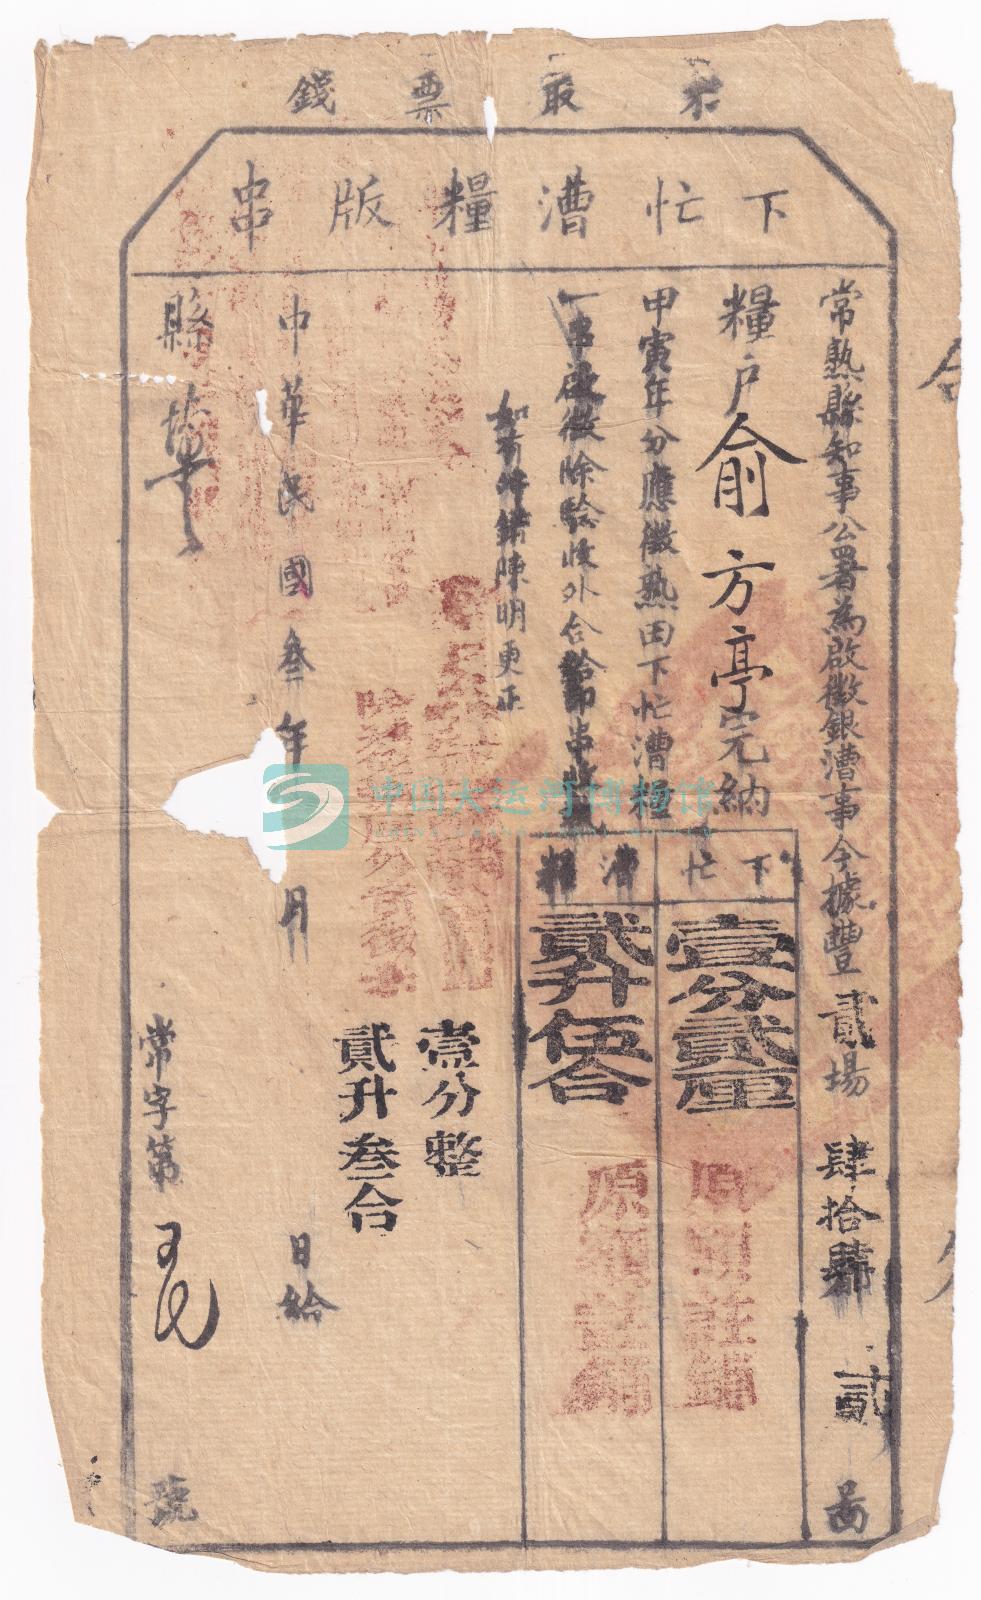 不取票錢
下忙漕糧版串
常熟縣知事公署為啟徵銀漕事今據豐貳場肆拾肆貳啚
糧戶俞方亭完納
甲寅年分應徵熟田下忙漕糧
下忙
壹分貳厘
漕糧
貳升伍合
原額註銷
原額註銷
一串啟徵除驗收外合給印串收
如有舛錯陳明更正
壹分整
貳升叁合
中華民國叁年 月 日給
縣
常字第 號
合
中国大运河博物馆